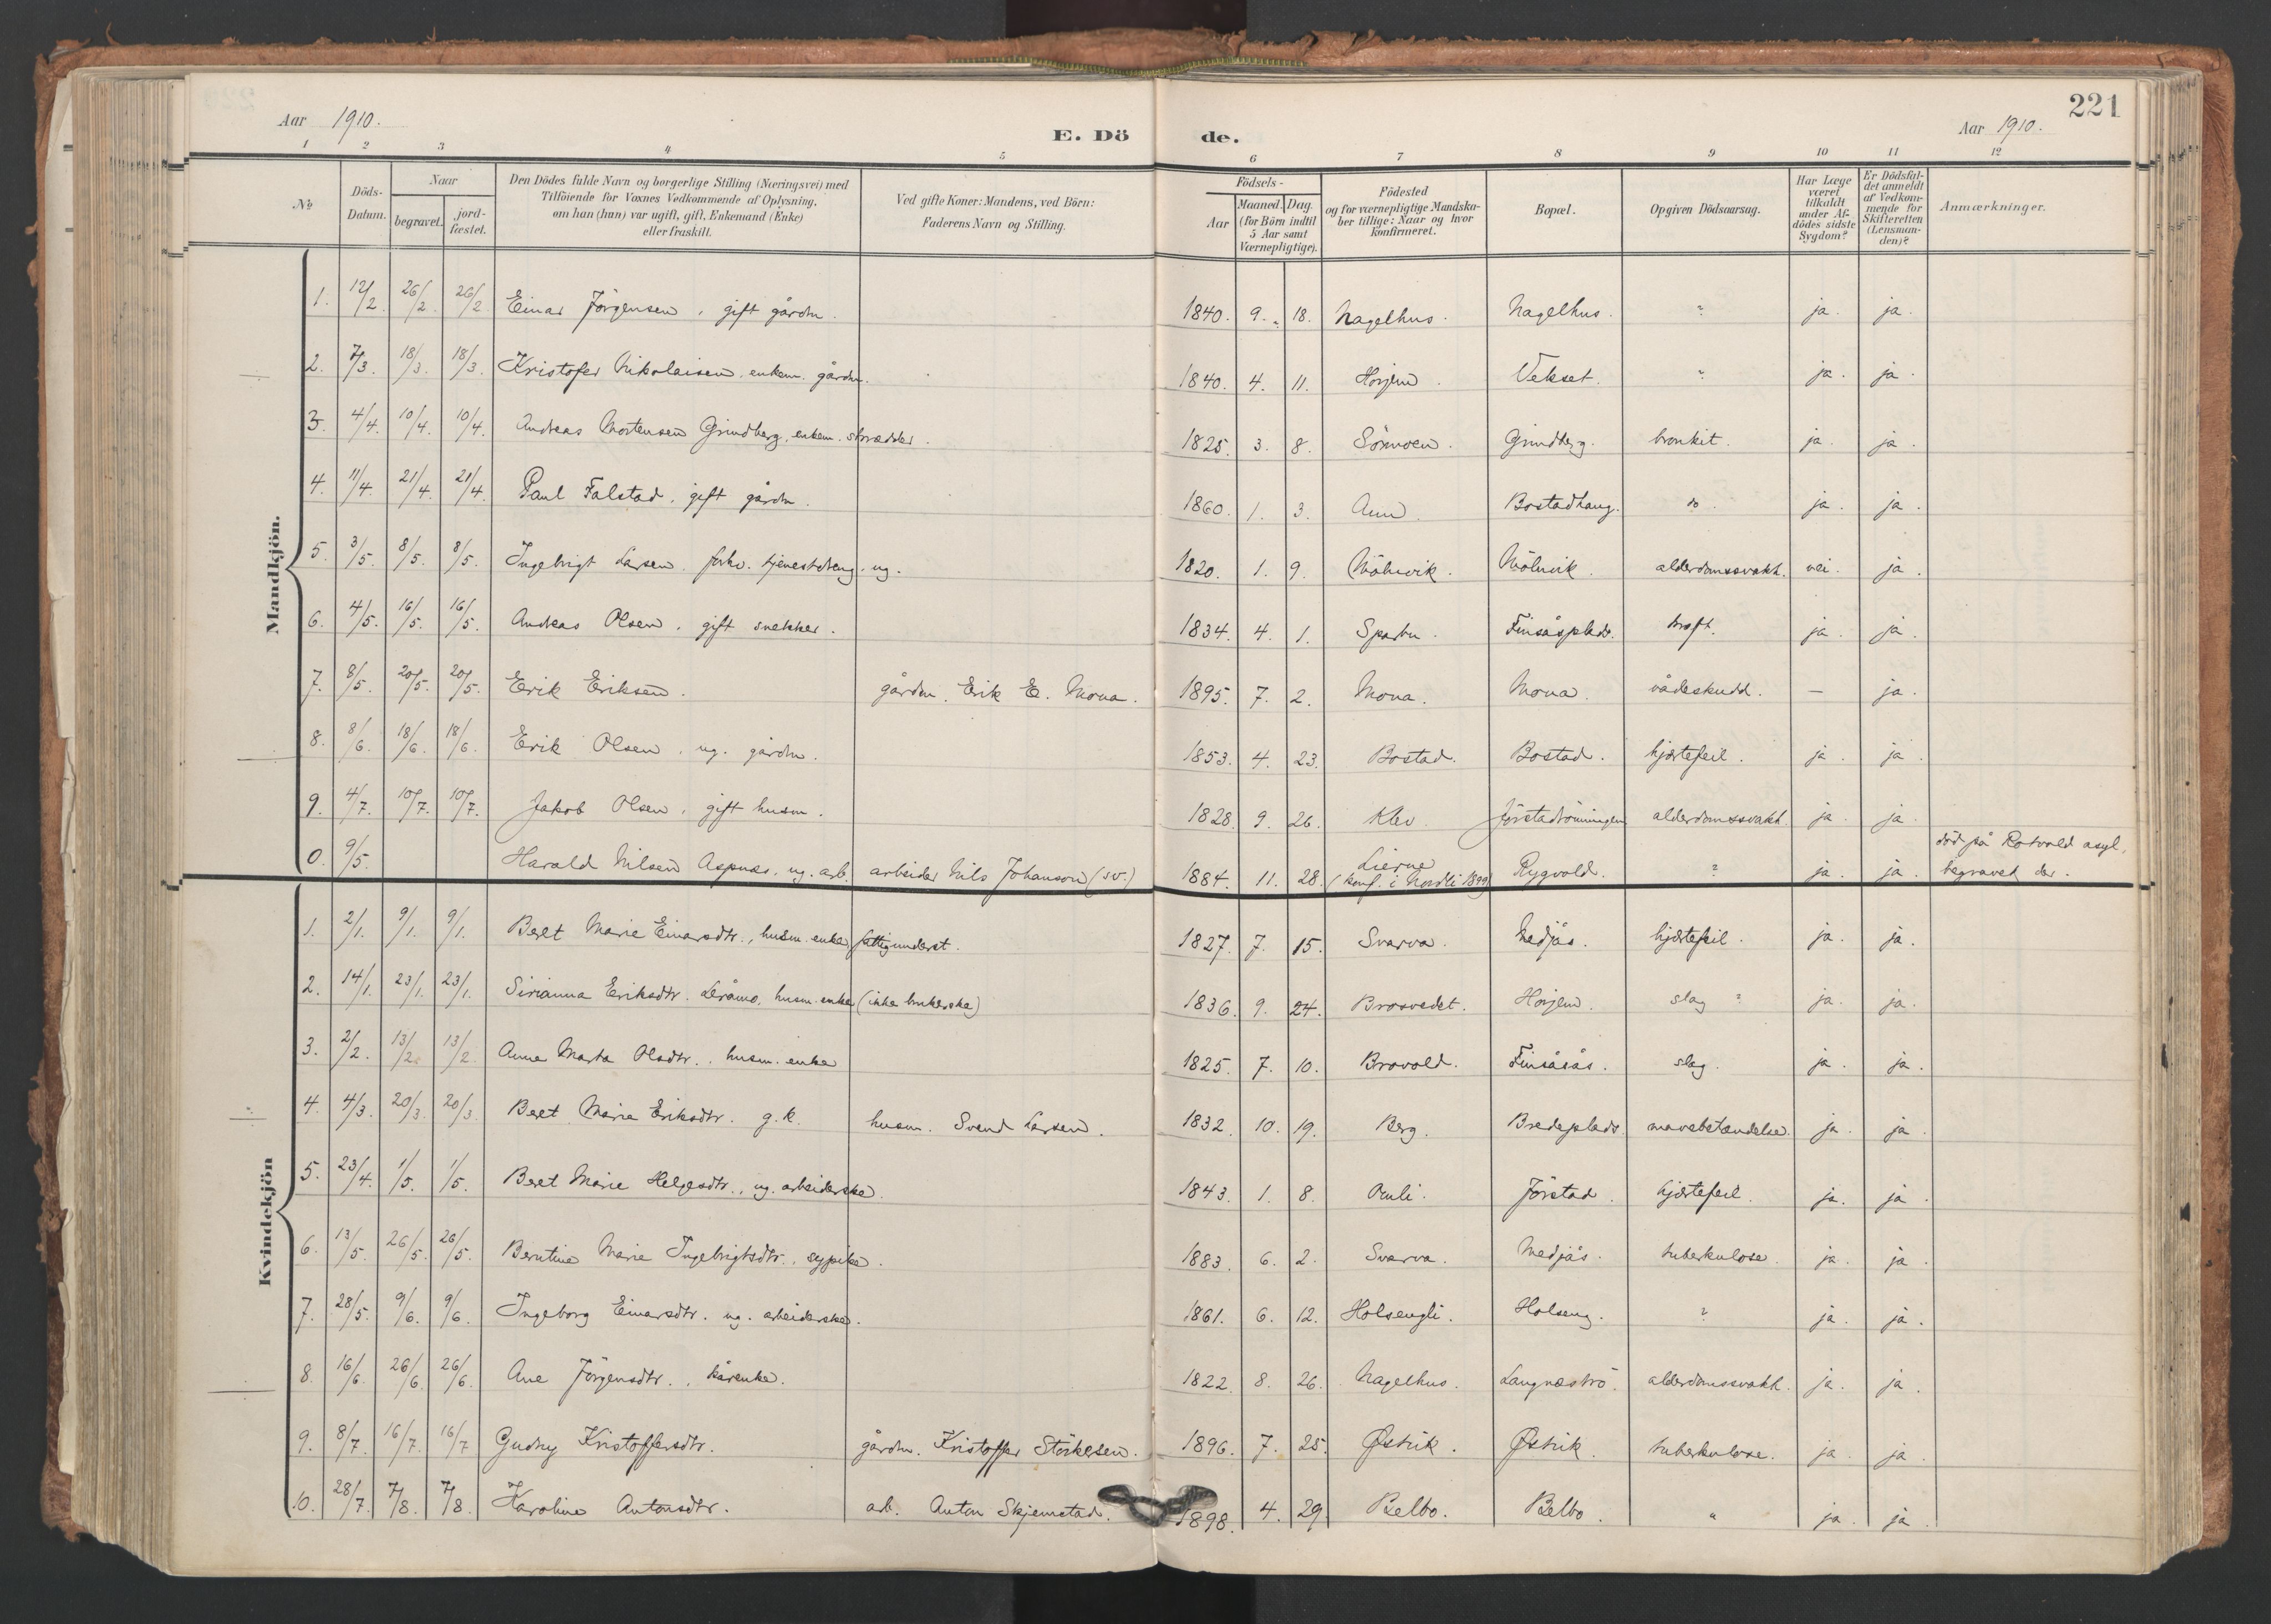 221
Aar 1910.
E. Dö
de.
Aar 1910.
1 2 3 4 5 6 7 8 9 10 11 12
№
Döds-Datum.
Naar
begravet.
jord-fæstet.
Den Dödes fulde Navn og borgerlige Stilling (Næringsvei) med
Tilföiende for Voxnes Vedkommende af Oplysning,
om han (hun) var ugift, gift, Enkemand (Enke)
eller fraskilt.
Ved gifte Koner: Mandens, ved Börn:
Faderens Navn og Stilling.
Födsels-
Aar
Maaned. Dag.
(for Börn indtil
5 Aar samt
Værnepligtige).
Födested
og for værnepligtige Mandska-
ber tillige: Naar og hvor
konfirmeret.
Bopæl.
Opgiven Dödsaarsag.
Har Læge
været
tilkaldt
under Af-
dödes sidste
Sygdom?
Er Dödsfal-
det anmeldt
af Vedkom-
mende for
Skifteretten
(Lensman-
den)?
Anmærkninger.
Mandkjön.
1. 12/2. 26/2. 26/2. Einar Jörgensen, gift gårdm. 1840. 9. 18. Nagelhus. Nagelhus. ? ja. ja.
2. 7/3. 18/3. 18/3. Kristofer Nikolaisen enkem. gårdm. 1840. 4. 11. Horjem. Vekset. ? ja. ja.
3. 4/4. 10/4. 10/4. Andreas Mortensen Grindberg, enkem. skrædder. 1825. 3. 8. Sörmoen. Grindberg. bronkit. ja. ja.
4. 11/4. 21/4. 21/4. Paul Falstad, gift gårdm. 1860. 1. 3. Aun. Bostadhaug. do. ja. ja.
5. 3/5. 8/5. 8/5. Ingebrigt Larsen. forhv. tjenestdreng. ug. 1820. 1. 9. Mölnvik. Mölnvik. alderdomssvakh. nei. ja.
6. 4/5. 16/5. 16/5. Andreas Olsen, gift snekker. 1834. 4. 1. Sparbu. Finsåsplads. kræft. ja. ja.
7. 8/5. 20/5. 20/5. Erik Eriksen. gårdm. Erik E. Mona. 1895. 7. 2. Mona. Mona. vådeskudd. — ja.
8. 8/6. 18/6. 18/6. Erik Olsen, ug. gårdm. 1853. 4. 23. Bostad. Bostad. hjertefeil. ja. ja.
9. 4/7. 10/7. 10/7. Jakob Olsen, gift husm. 1828. 9. 26. Klev. Jörstadrönningen alderdomssvakh. ja. ja.
0. 9/5. Harald Nilsen Aspnes. ug. arb. arbeider Nils Johanson (sv.) 1884. 11. 28. Lierne (konf. i Nordli 1899) Rygvold. ? ja. ja. död på Rotvold asyl, begravet der.
Kvindekjön
1. 2/1. 9/1. 9/1. Beret Marie Einarsdtr., husm. enke, fattigunderst. 1827. 7. 15. Svarva. Medjås. hjertefeil. ja. ja.
2. 14/1. 23/1. 23/1. Sirianna Eriksdtr. Leråmo, husm. enke (ikke brukerske) 1836. 9. 24. Brosvedet. Horjem. slag ? ja. ja.
3. 2/2. 13/2. 13/2. Anne Marta Olsdtr., husm. enke 1825. 7. 10. Brovold. Finsåsås. slag. ja. ja.
4. 4/3. 20/3. 20/3. Beret Marie Eriksdtr. g. k. husm. Svend Larsen. 1832. 10. 19. Berg. Bredeplads. mavebetændelse. ja. ja.
5. 23/4. 1/5. 1/5. Beret Marie Helgesdtr., ug. arbeiderske. 1843. 1. 8. Omli. Jörstad. hjertefeil. ja. ja.
6. 13/5. 26/5. 26/5. Berntine Marie Ingebrigtsdtr., sypike. 1883. 6. 2. Svarva. Medjås. tuberkulose. ja. ja.
7. 28/5. 9/6. 9/6. Ingeborg Einarsdtr. ug. arbeiderske. 1861. 6. 12. Holsengli. Holseng. ? ja. ja.
8. 16/6. 26/6. 26/6. Ane Jörgensdtr., kårenke. 1822. 8. 26. Nagelhus. Langneströ. alderdomssvakh. ja. ja.
9. 8/7. 16/7. 16/7 Gudny Kristoffersdtr. gårdm. Kristoffer Störkesen. 1896. 7. 25. Østvik. Østvik. tuberkulose. ja. ja.
10. 28/7. 7/8. 7/8. Karoline Antonsdtr. arb. Anton Skjemstad. 1898. 4. 29. Belbo. Belbo. " ja. ja.